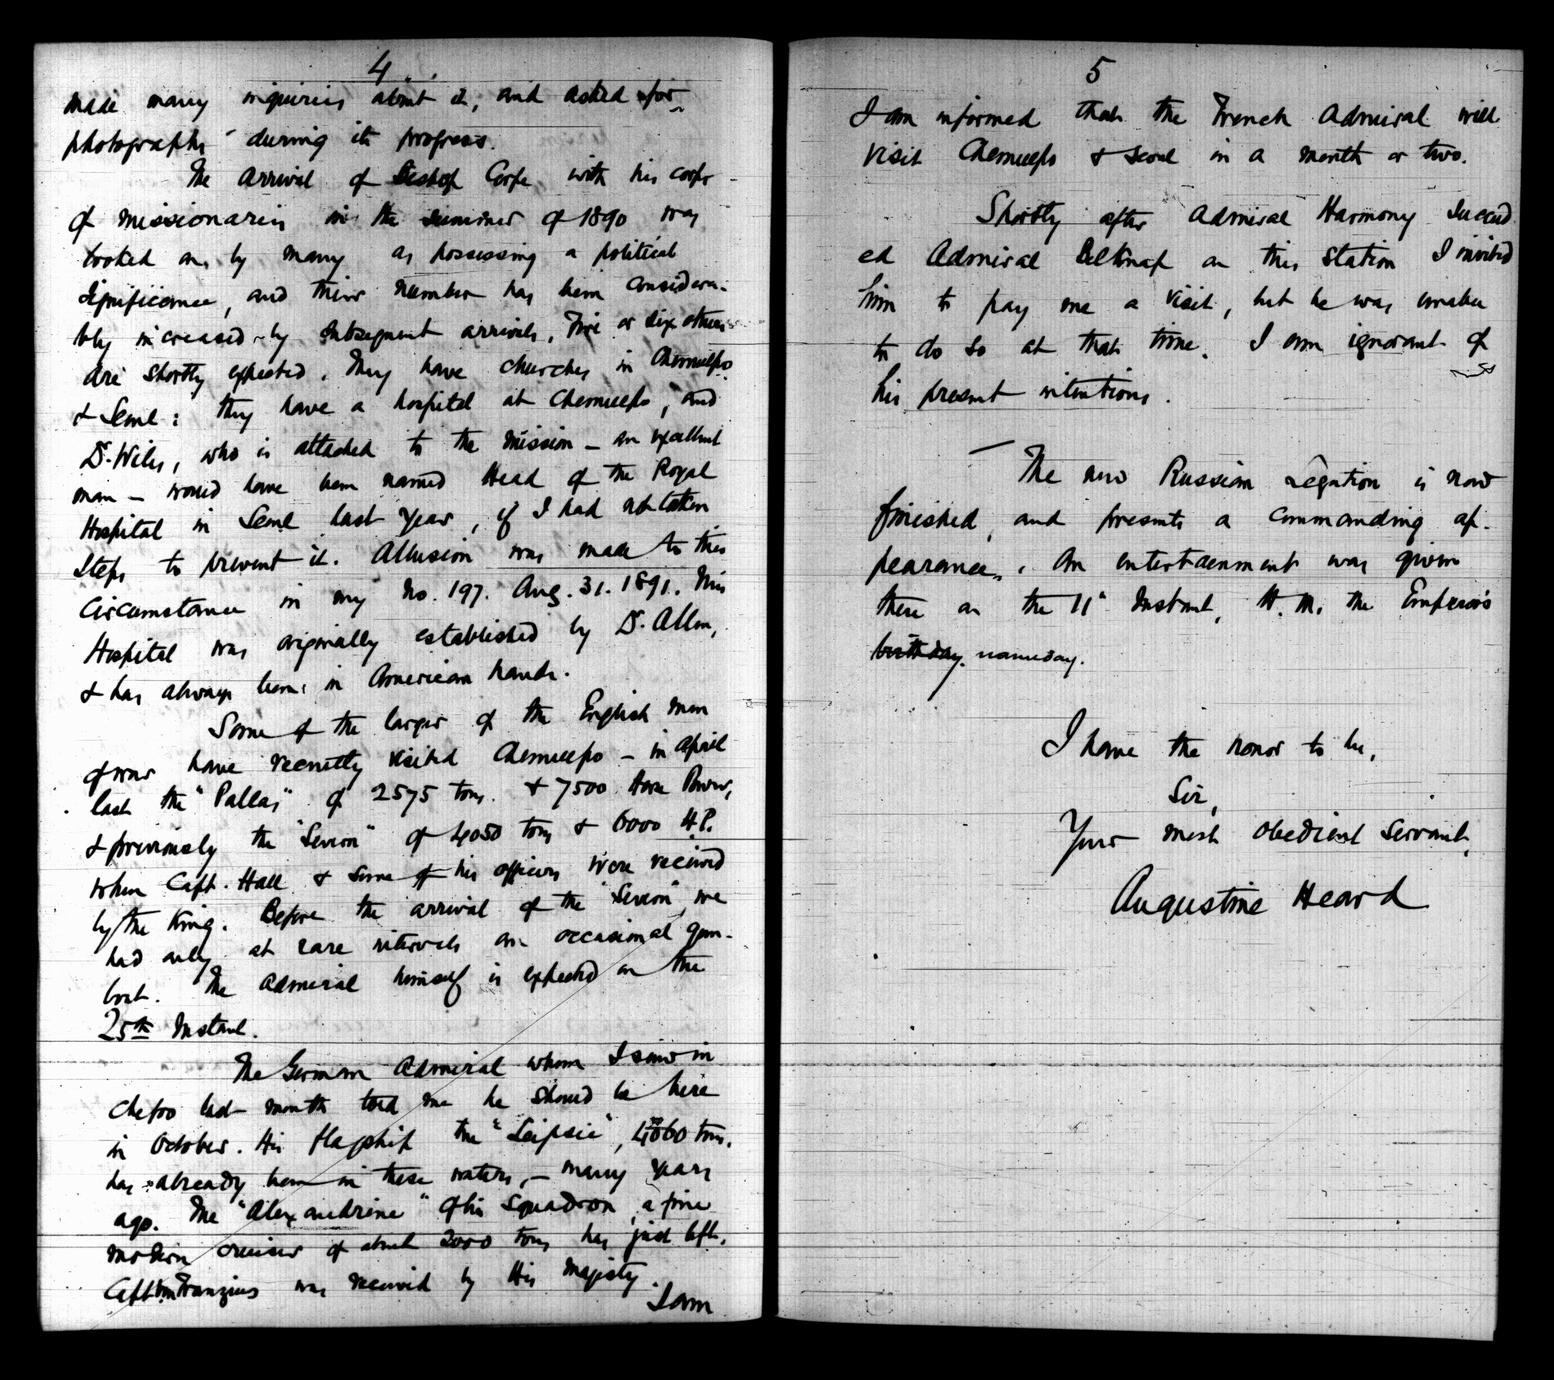 4
made many inquiries about it, and asked for
photographs during its progress.
The arrival of Bishop Corfe with his corps
of missionaries in the summer of 1890 was
looked on, by many as possessing a political
significance, and their number has been considera-
bly increased by subsequent arrivals. Five or six others
are shortly expected. They have churches in Chemulpo
& Seoul: they have a hospital at Chemulpo, and
Dr. Wiles, who is attached to the mission — an excellent
man — would have been named Head of the Royal
Hospital in Seoul last year, if I had not taken
steps to prevent it. Allusion was made to this
circumstance in my No. 197. Aug. 31. 1891. This
Hospital was originally established by Dr. Allen,
& has always been in American hands.
Some of the larger of the English men
of war have recently visited Chemulpo — in April
last the "Pallas" of 2575 tons & 7500 Horse Power,
& previously the "Severn" of 4050 tons & 6000 H.P.
when Capt. Hall & some of his officers were received
by the King. Before the arrival of the "Severn", we
had only at rare intervals an occasional gun-
boat. The Admiral himself is expected on the
25th Instant.
The German Admiral whom I saw in
Chefoo last month told me he should be here
in October. His flagship the "Leipsic", tons.
has already been in these waters, — many years
ago. The "Alexandrine" of his Squadron, a fine
modern cruiser of about 2000 tons has just left.
Capt von Franzius was received by His Majesty.
I am
5
I am informed that the French Admiral will
visit Chemulpo & Seoul in a month or two.
Shortly after Admiral Harmony succeed
ed Admiral Belknap on this Station I invited
him to pay me a visit, but he was unable
to do so at that time. I am ignorant of
his present intentions.
The new Russian Legation is now
finished, and presents a commanding ap-
pearance. An entertainment was given
there on the 11th Instant, H. M. the Emperor's
birthday. nameday.
I have the honor to be,
Sir,
Your most obedient Servant,
Augustine Heard